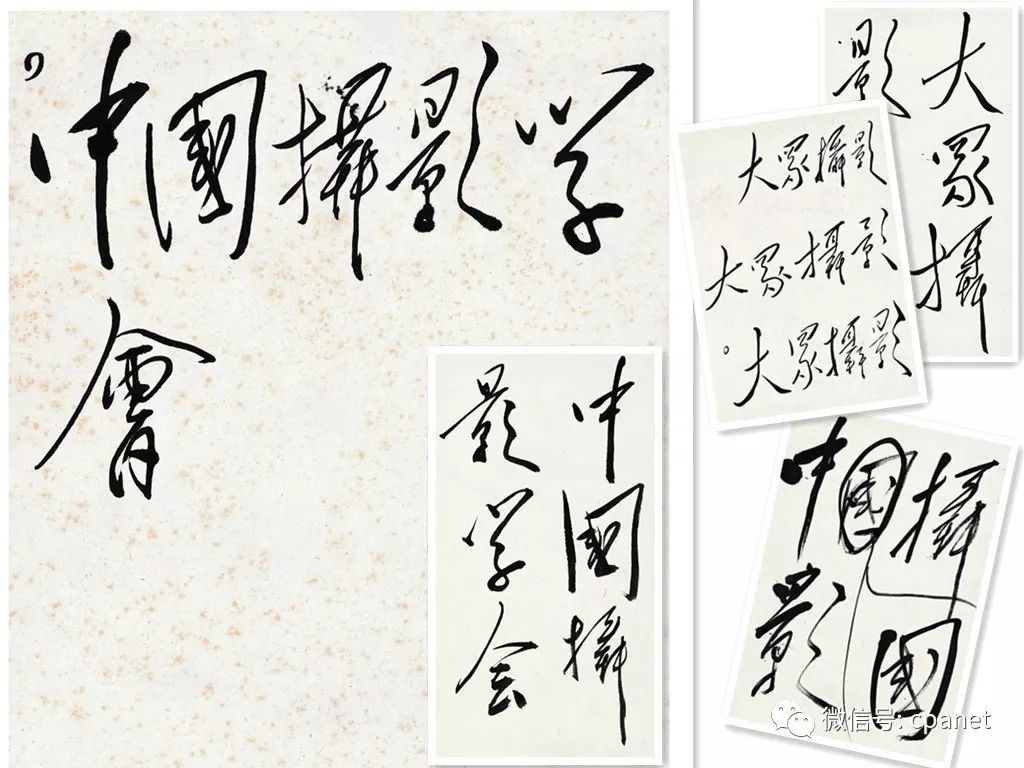 中國攝影学
會
中國攝
影学会
大众攝
影
大众攝影
大众攝影
大众攝影
中國攝
影國
微信号: cpanet